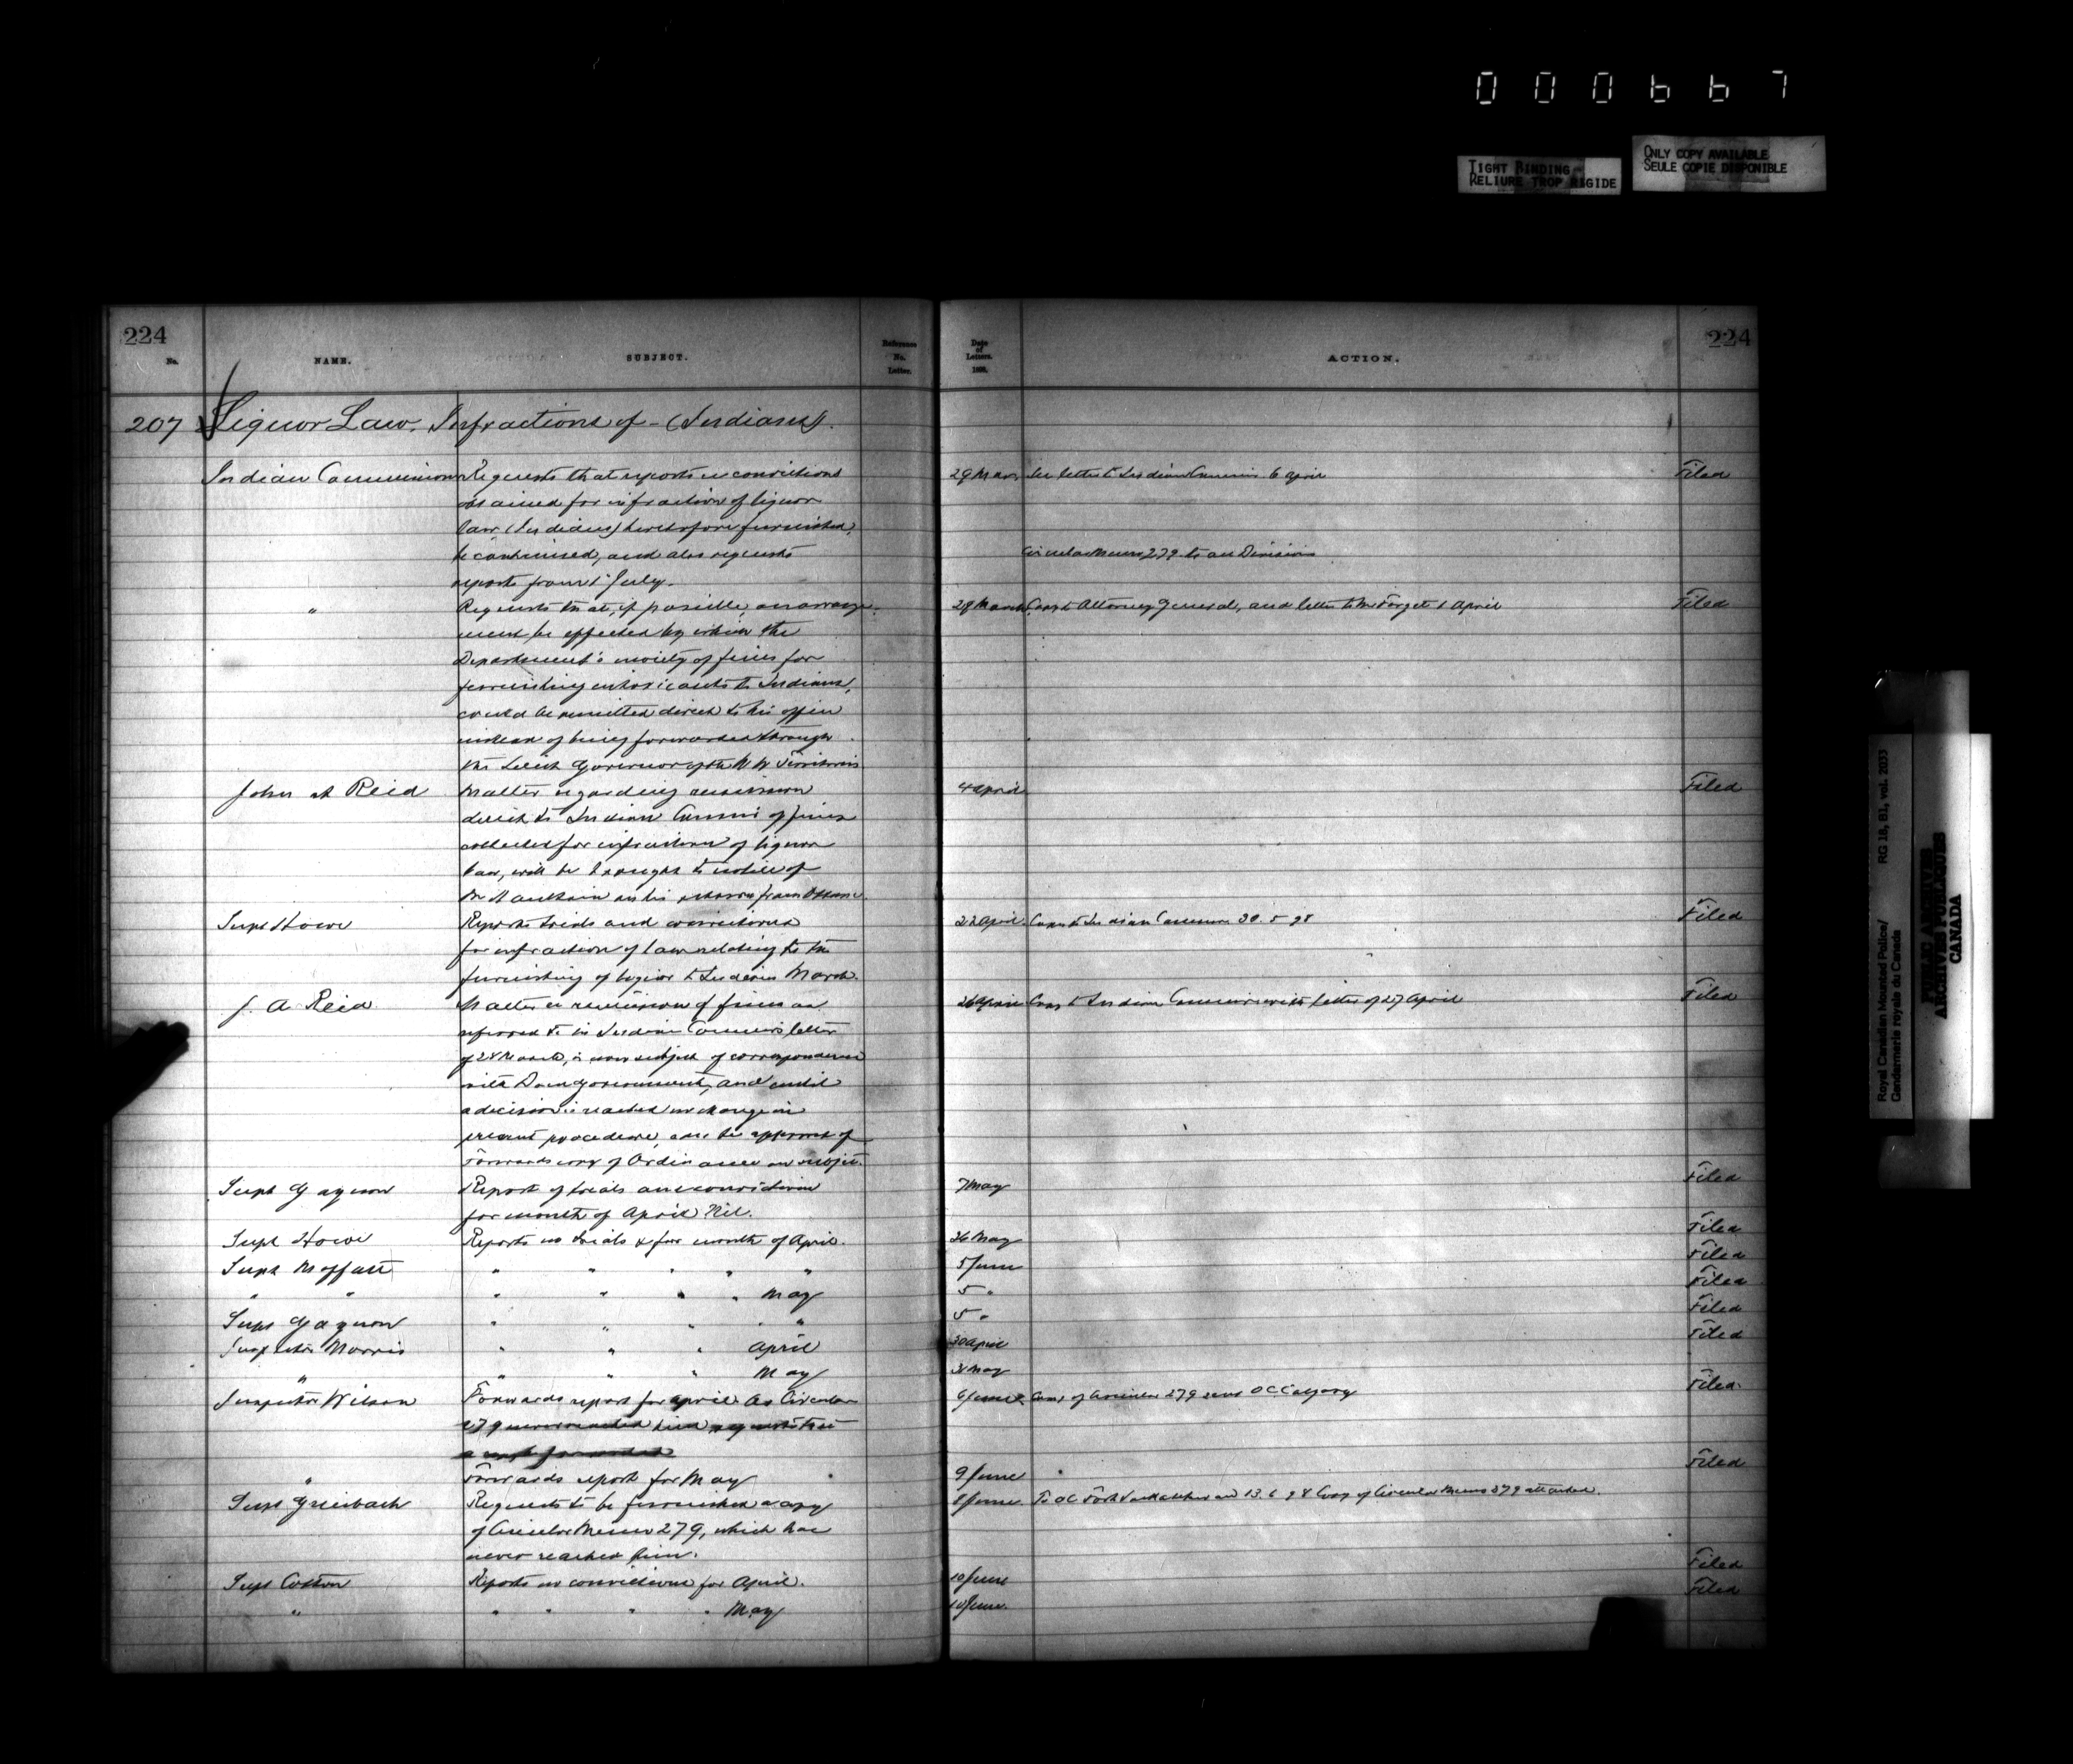 000667
TIGHT BINDING
RELIURE TROP RIGIDE
ONLY COPY AVAILABLE
SEULE COPIE DISPONIBLE
224
No. NAME. SUBJECT. Reference No. Letter.
Date of Letters. 1898. ACTION.
224
207 Liquor Law. Infractions of - (Indians).
Indian Commissioner Requests that reports re convictions 29 Mar. See letter to Indian Commis. 6 April Filed
obtained for infraction of liquor
law (Indians) heretofore furnished,
be continued, and also requests Circular Memo 279 to all Divisions
reports from 1st July.
" Requests that, if possible, an arrange- 28 March Copy to Attorney General, and letter to Mr Forget 1 April Filed
ment be effected by which the
Department's moiety of fines for
furnishing intoxicants to Indians,
could be remitted direct to his office
instead of being forwarded through
the Lieut Governor of the N W Territories
John A Reid Matter regarding remission 4 April Filed
direct to Indian Commis of fines
collected for infraction of liquor
law, will be brought to notice of
Mr Haultain on his return from Ottawa.
Supt Howe Reports trials and convictions 22 April. Copy to Indian Commissr 30. 5 98 Filed
for infraction of law relating to the
furnishing of liquor to Indians March.
J. A Reid Matter re remission of fines as 26 April Copy to Indian Commissr with letter of 27 April Filed
referred to in Indian Commis letter
of 28 March, is now subject of correspondence
with Dom Government, and until
a decision is reached no change in
present procedure, can be approved of
Forwards copy of Ordinance on subject.
Supt Gagnon Report of trials and convictions 7 May Filed
for month of April Nil.
Supt Howe Reports no trials & for month of April. 26 May Filed
Supt Moffatt " " " " " 5 June Filed
" " " " " " May 5 " Filed
Supt Gagnon " " " " " 5 " Filed
Inspector Morris " " " April 30 April Filed
" " " " May 31 May
Inspector Wilson Forwards report for April. As Circular 6 June Copy of Circular 279 sent OC Calgary Filed
279 never reached him requests that
a copy forwarded
" Forwards report for May 9 June Filed
Supt Griesbach Requests to be furnished a copy 8 June To OC Fort Saskatchewan 13. 6 98 Copy of Circular Memo 279 attached.
of Circular Memo 279, which has
never reached him.
Supt Cotton Reports no convictions for April. 10 June Filed
" " " " " May 10 June. Filed
Royal Canadian Mounted Police/ RG 18, B1, vol. 2033
Gendarmerie royale du Canada
PUBLIC ARCHIVES
ARCHIVES PUBLIQUES
CANADA